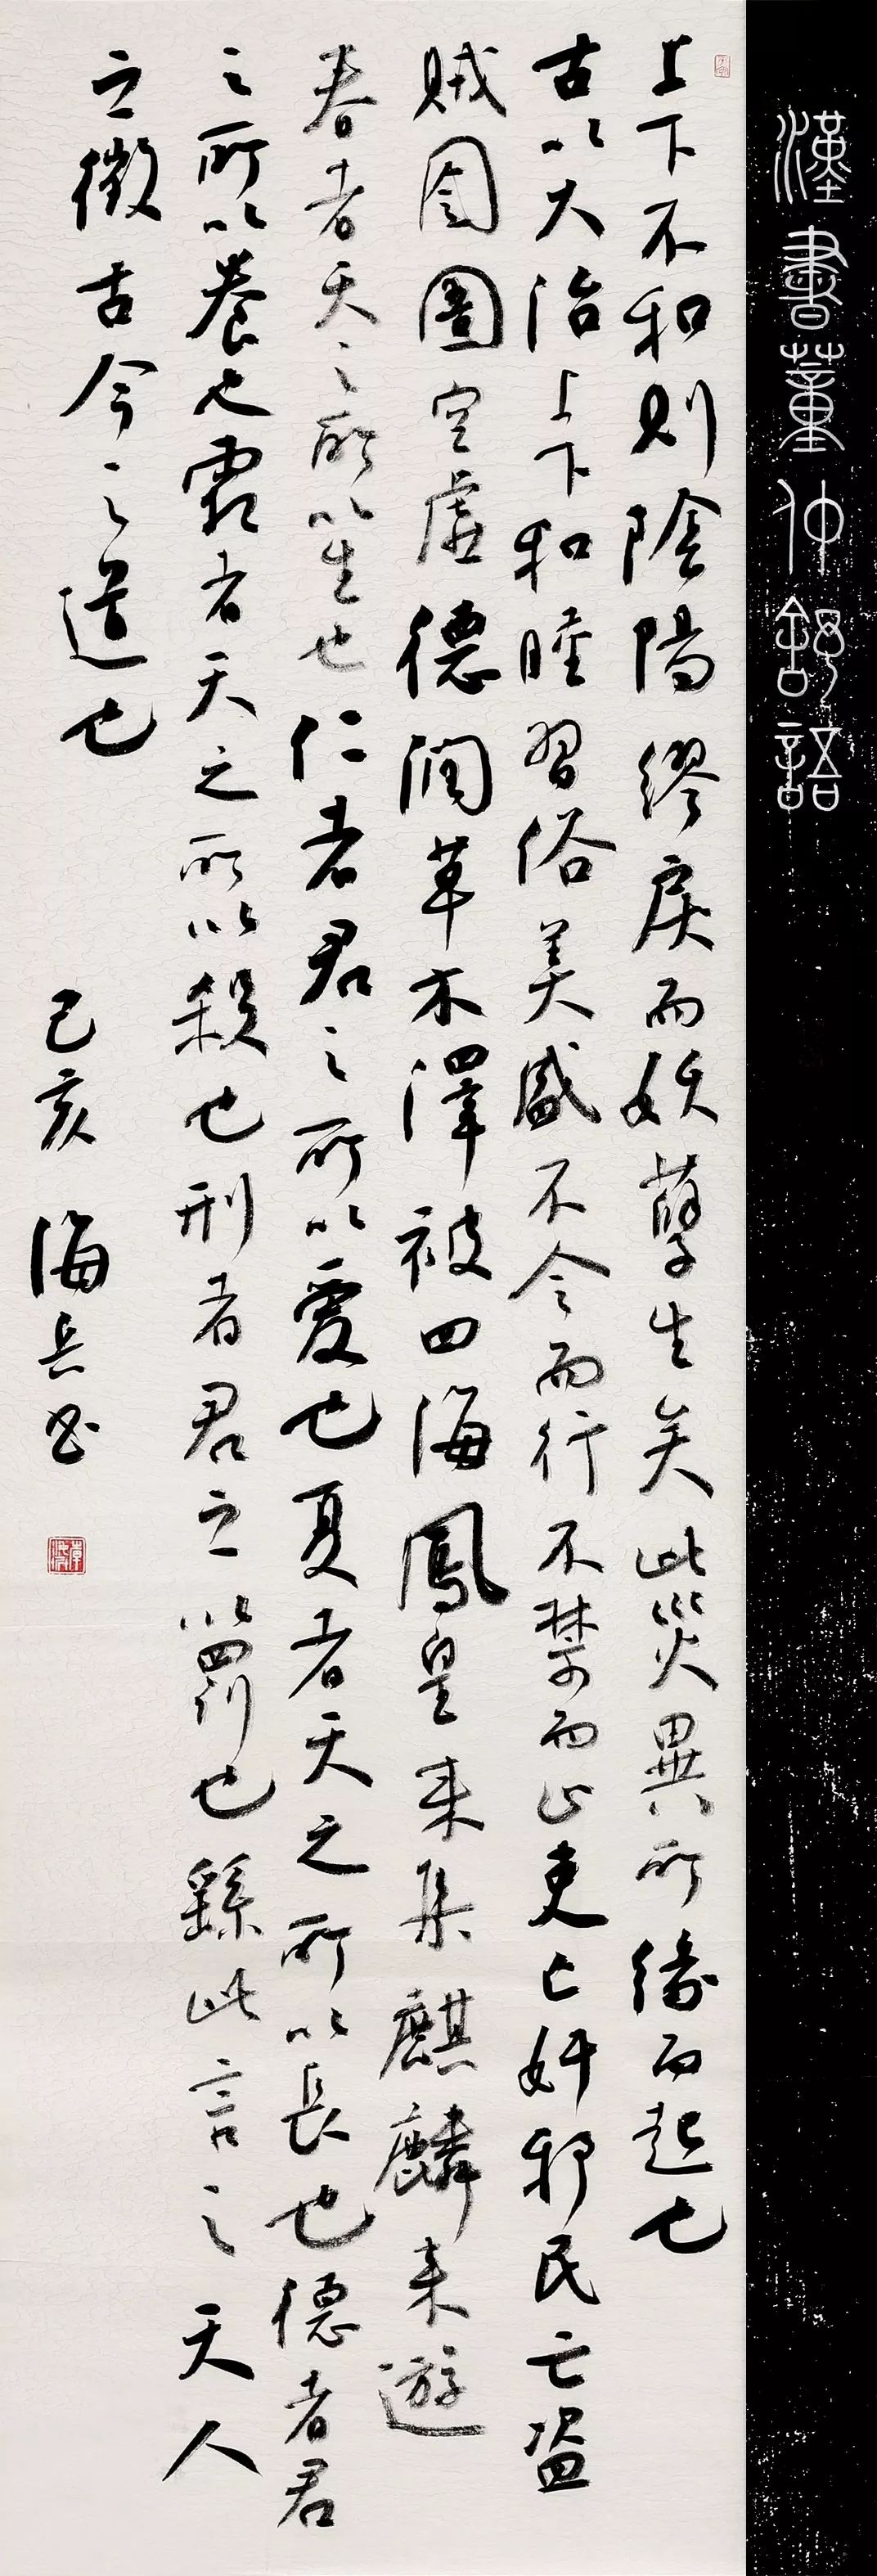 漢書董仲舒語
上下不和則陰陽繆戾而妖孽生矣此災異所緣而起也
古以大治上下和睦習俗美盛不令而行不禁而止吏亡奸邪民亡盜
賊囹圄空虛德潤草木澤被四海鳳皇来集麒麟来遊
春者天之所以生也仁者君之所以愛也夏者天之所以長也德者君
之所以養也霜者天之所以殺也刑者君之以罰也繇此言之天人
之徵古今之道也
己亥 海兵书